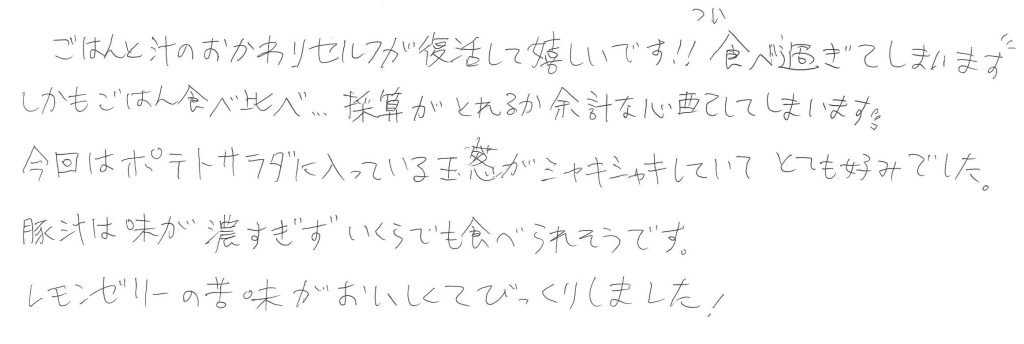 ごはんと汁のおかわりセルフが復活して嬉しいです!! つい食べ過ぎてしまいます
しかもごはん食べ比べ… 採算がとれるか余計な心配してしまいます。
今回はポテトサラダに入っている玉葱がシャキシャキしていて とても好みでした。
豚汁は味が濃すぎず いくらでも食べられそうです。
レモンゼリーの苦味がおいしくてびっくりしました!